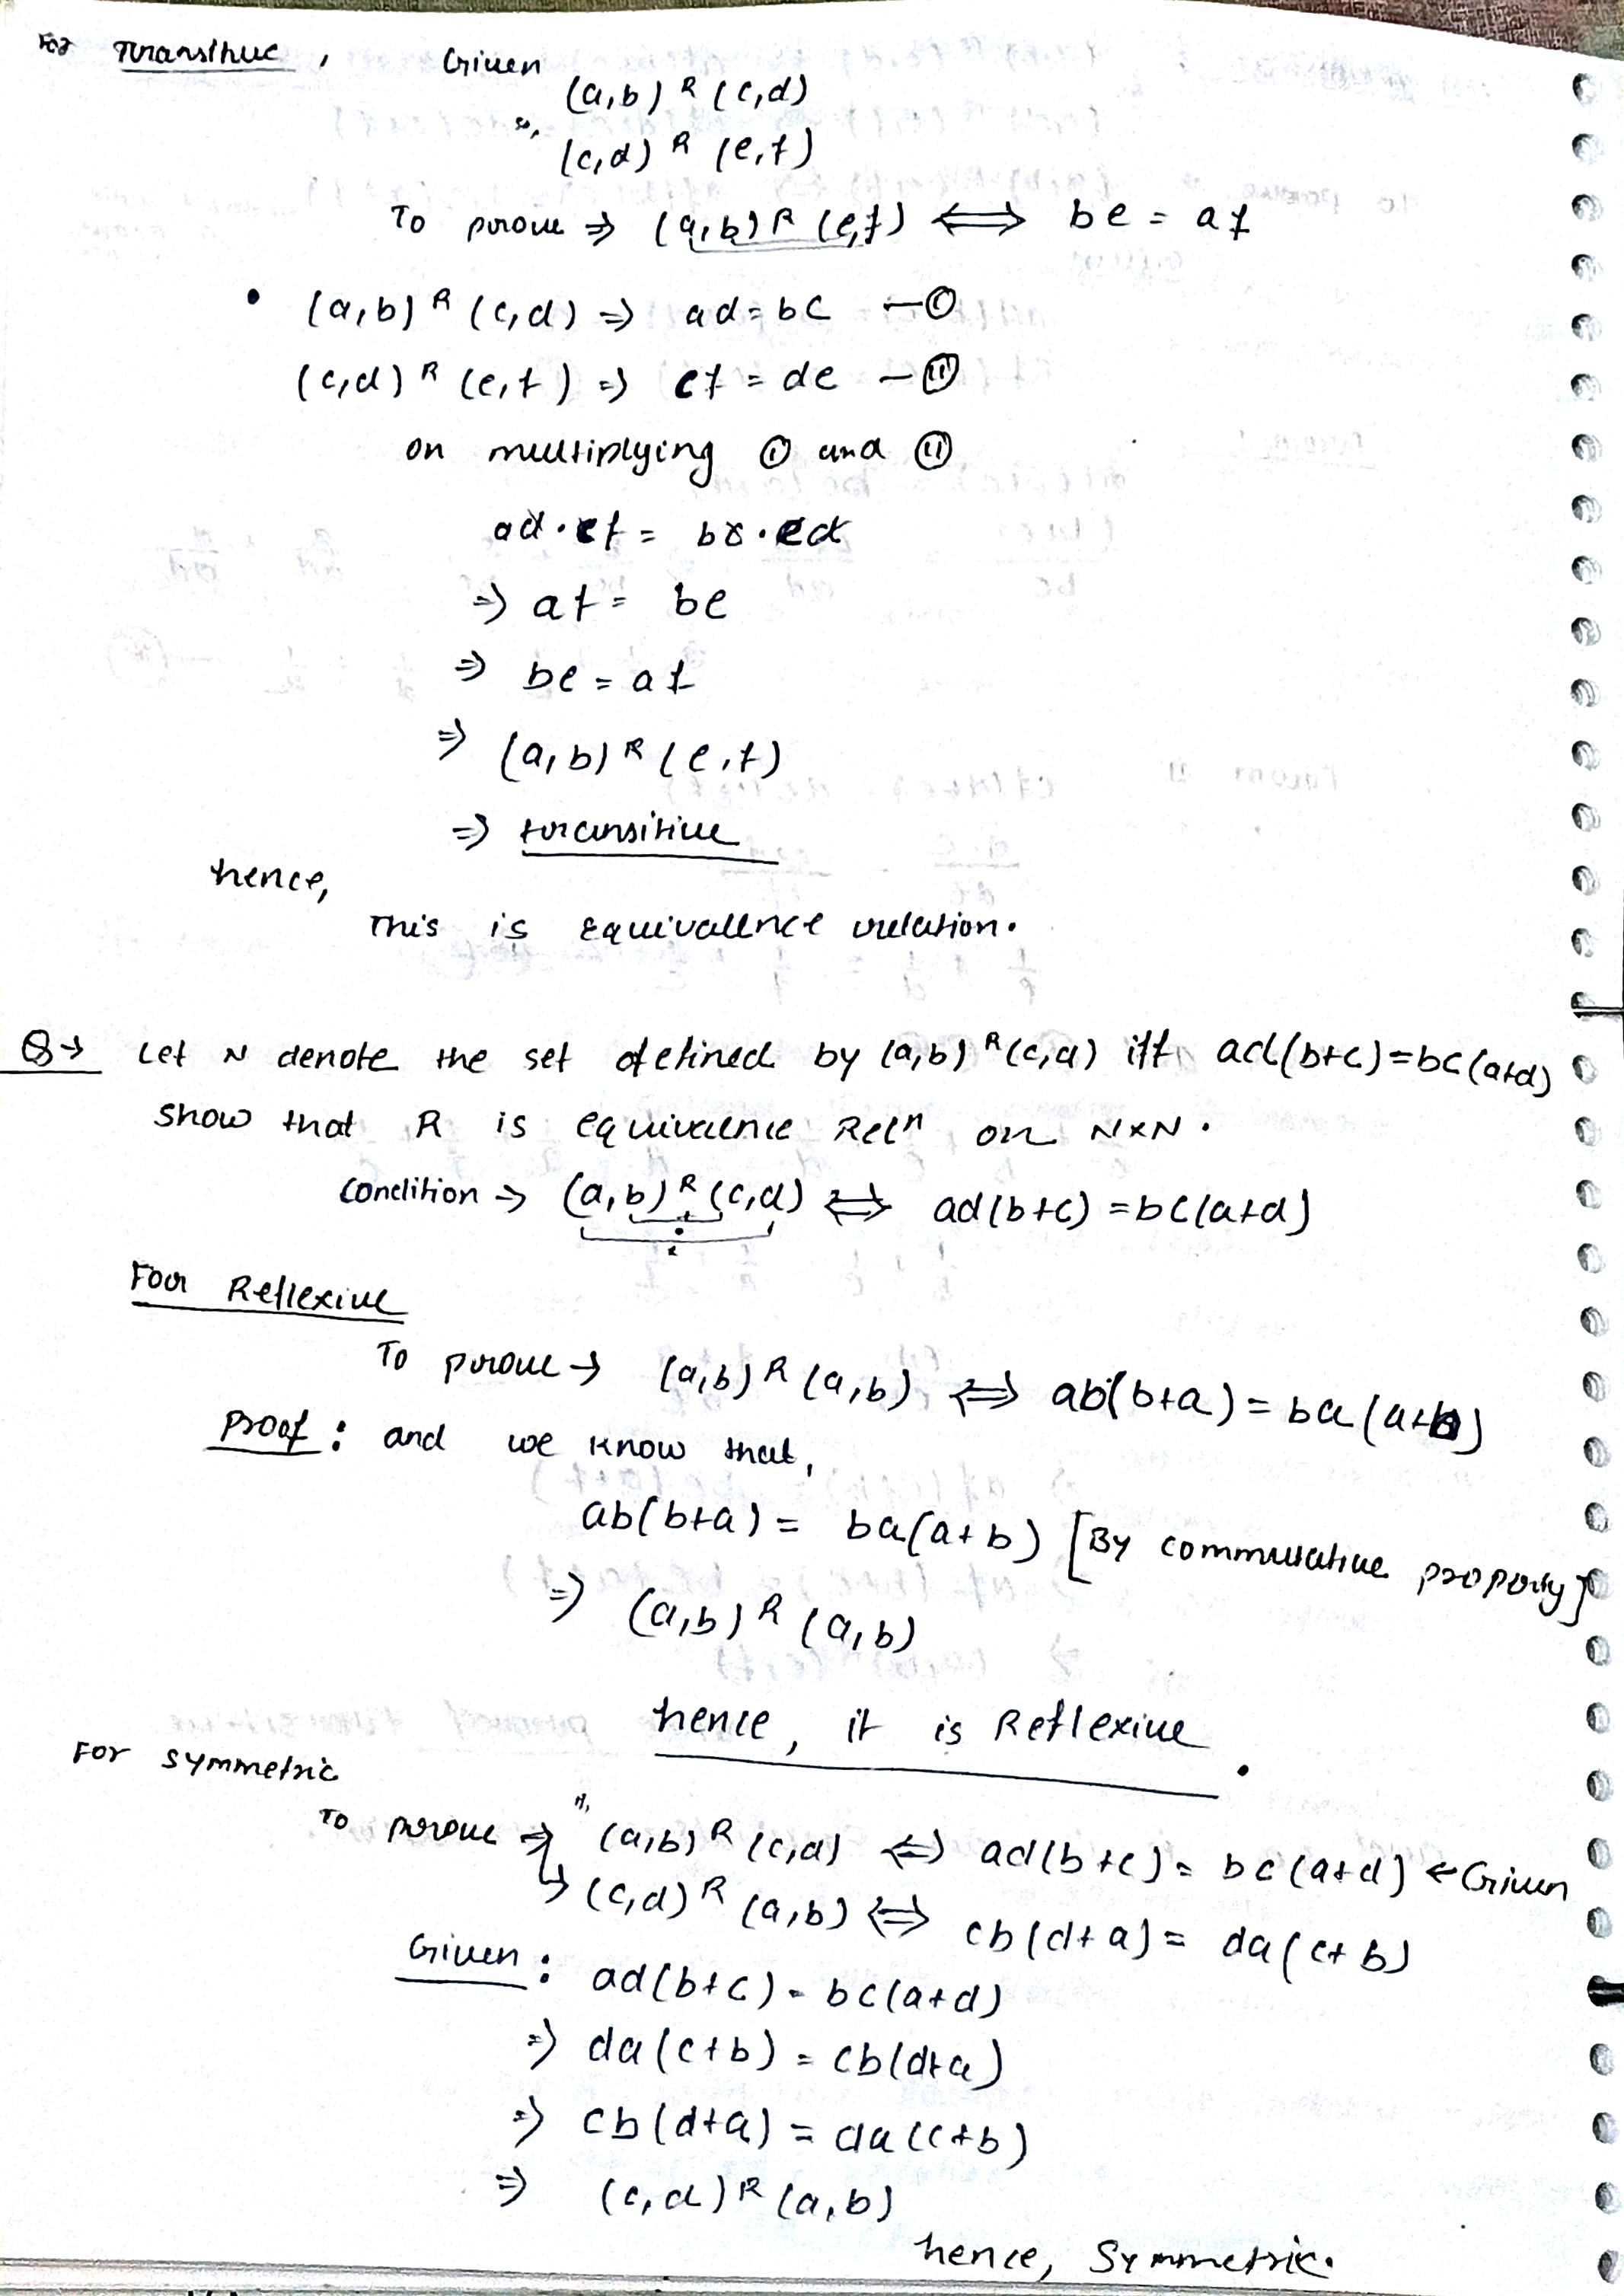 For Transitive, Given
(a,b) R (c,d)
(c,d) R (e,f)
To prove ⇒ (a,b) R (e,f) ⟺ be = af
• (a,b) R (c,d) ⇒ ad = bc —①
(c,d) R (e,f) ⇒ cf = de —⑪
on multiplying ① and ⑪
ad·cf = bc·ed
⇒ af = be
⇒ be = af
⇒ (a,b) R (e,f)
⇒ transitive
hence,
This is Equivalence relation.
Q→ Let N denote the set defined by (a,b) R (c,d) iff ad(b+c)=bc(a+d)
show that R is equivalence Relⁿ on N×N.
Condition → (a,b) R (c,d) ⟺ ad(b+c) = bc(a+d)
For Reflexive
To prove → (a,b) R (a,b) ⟺ ab(b+a) = ba(a+b)
Proof : and we know that,
ab(b+a) = ba(a+b) [By commutative property]
⇒ (a,b) R (a,b)
hence, it is Reflexive.
For symmetric
To prove ⇒ (a,b) R (c,d) ⟺ ad(b+c) = bc(a+d) ← Given
↳ (c,d) R (a,b) ⟺ cb(d+a) = da(c+b)
Given : ad(b+c) = bc(a+d)
⇒ da(c+b) = cb(d+a)
⇒ cb(d+a) = da(c+b)
⇒ (c,d) R (a,b)
hence, Symmetric.